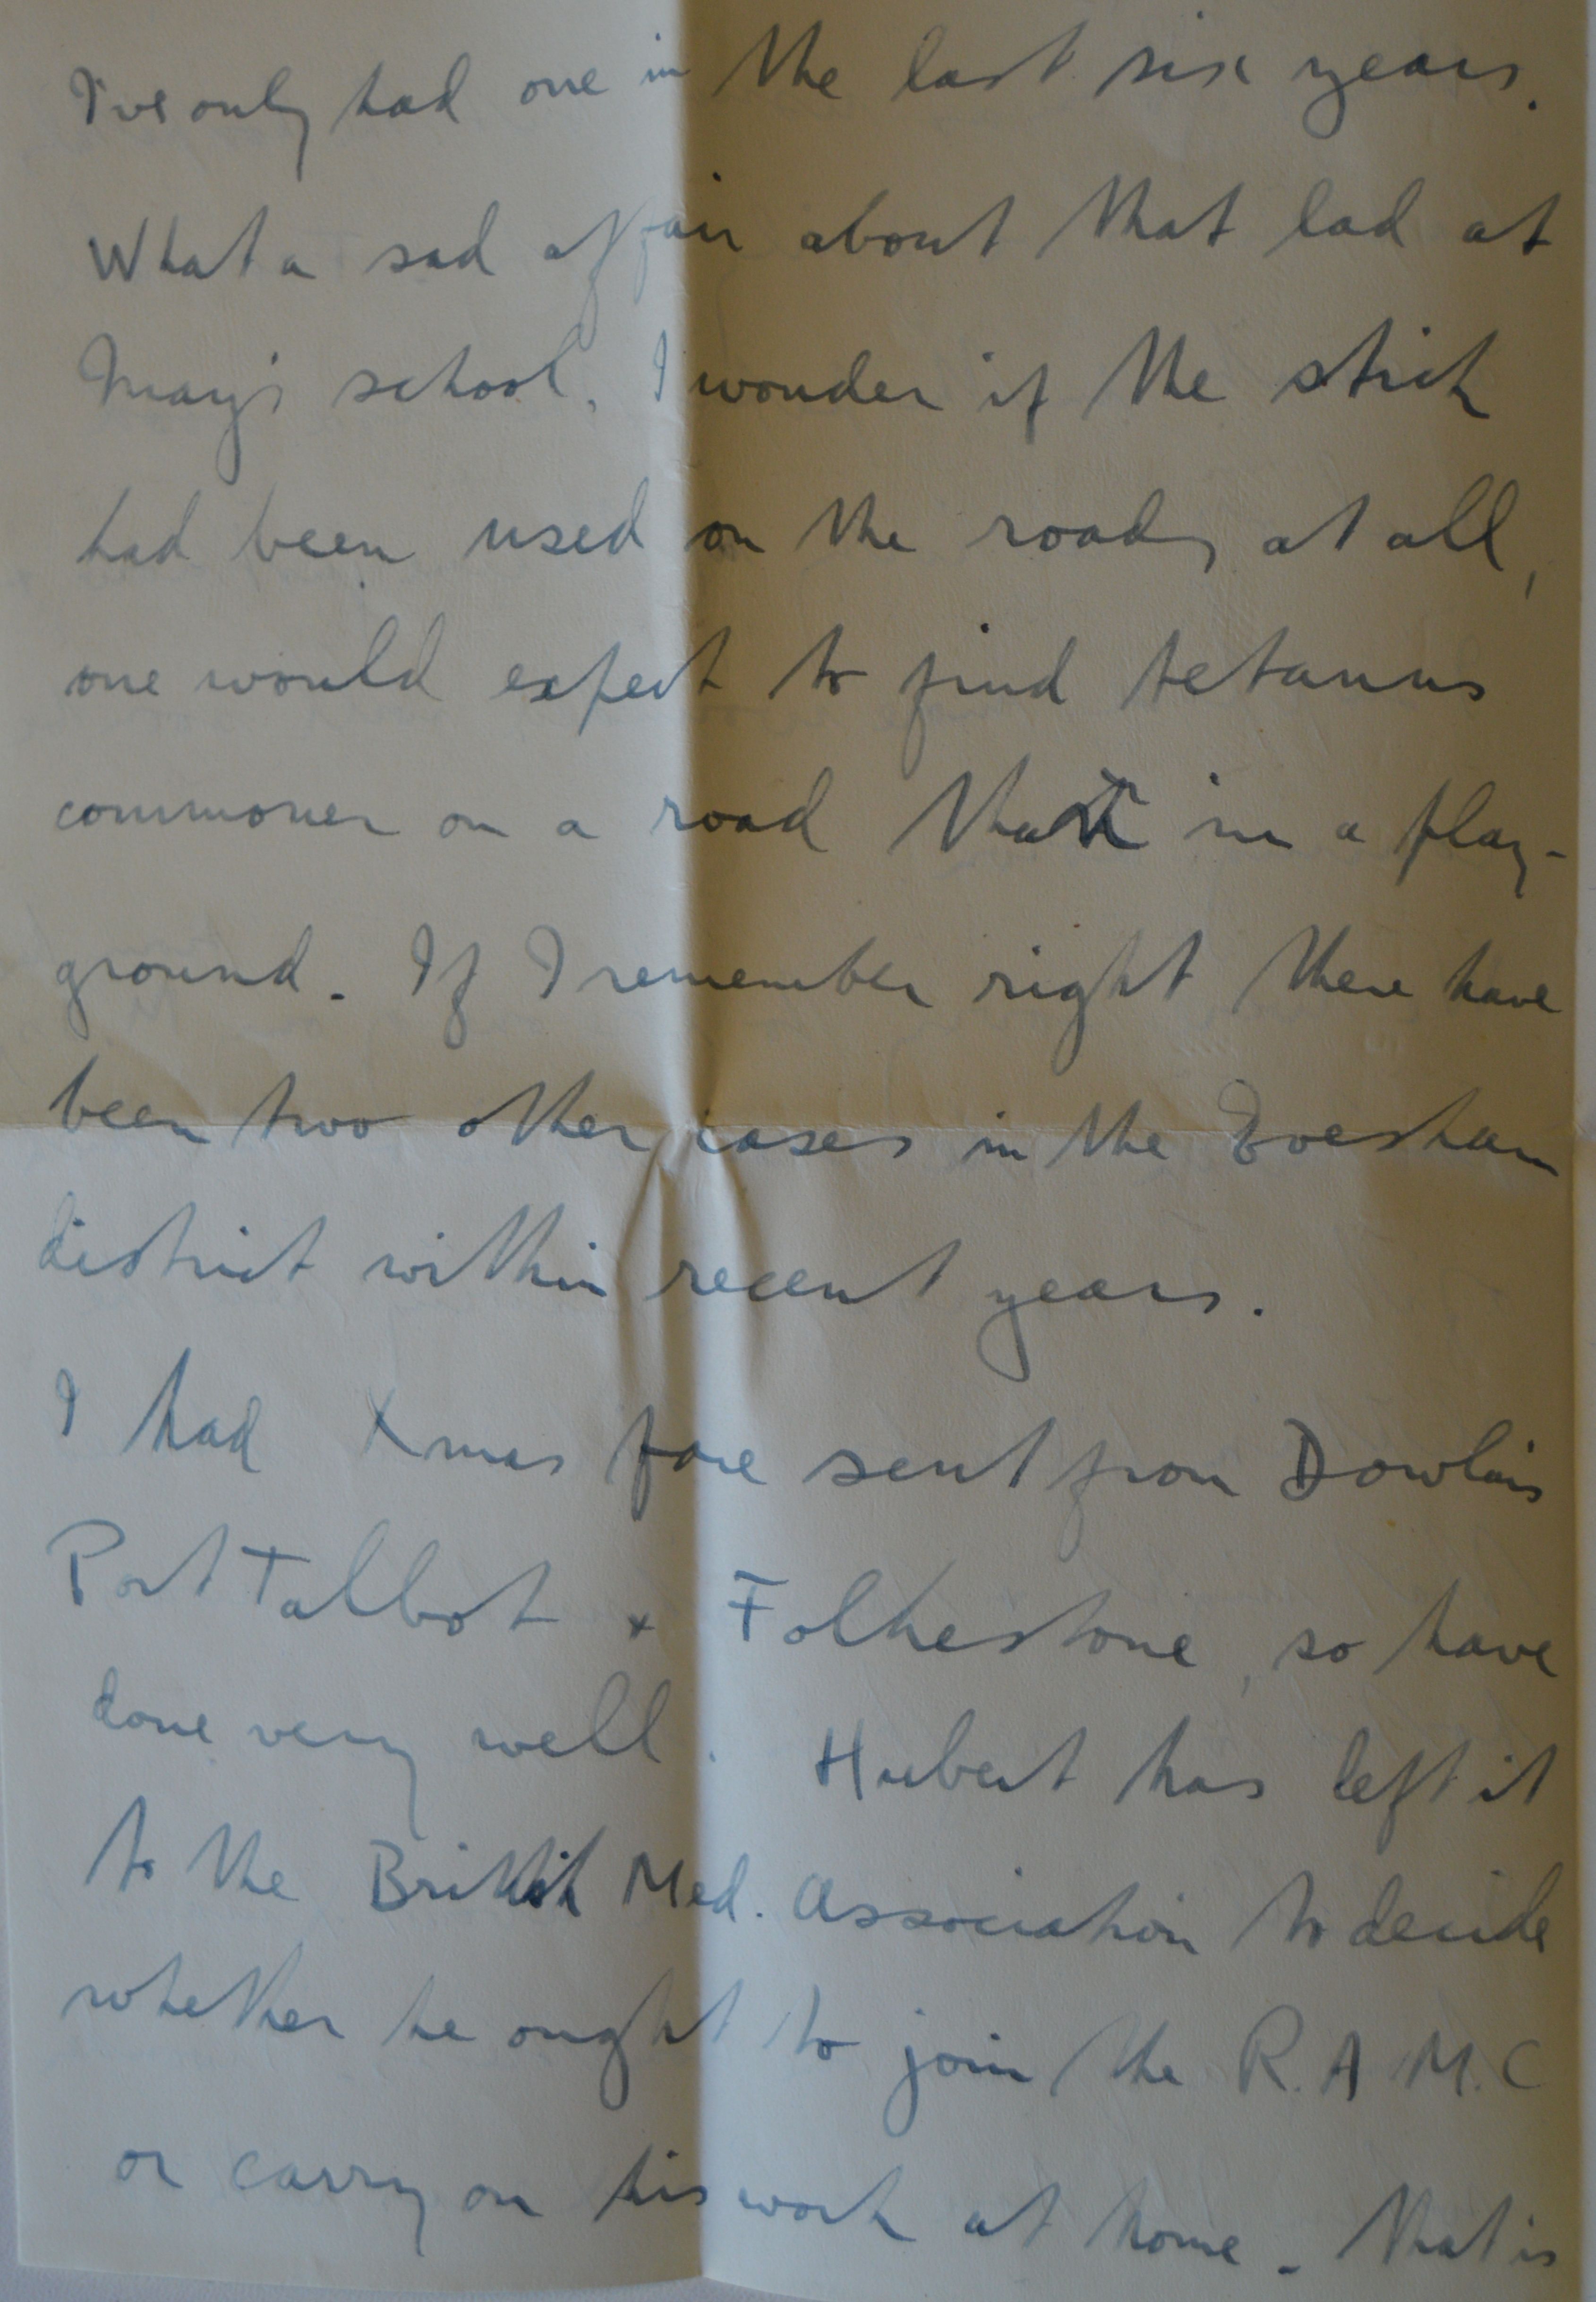 I've only had one in the last six years.
What a sad affair about that lad at
May's school. I wonder if the stick
had been used on the roads at all,
one would expect to find tetanus
commoner on a road than in a play-
ground. If I remember right there have
been two other cases in the Evesham
district within recent years.
I had Xmas fare sent from Dowlais
Port Talbot & Folkestone, so have
done very well. Hubert has left it
to the British Med. Association to decide
whether he ought to join the R.A.M.C
or carry on his work at home. That is